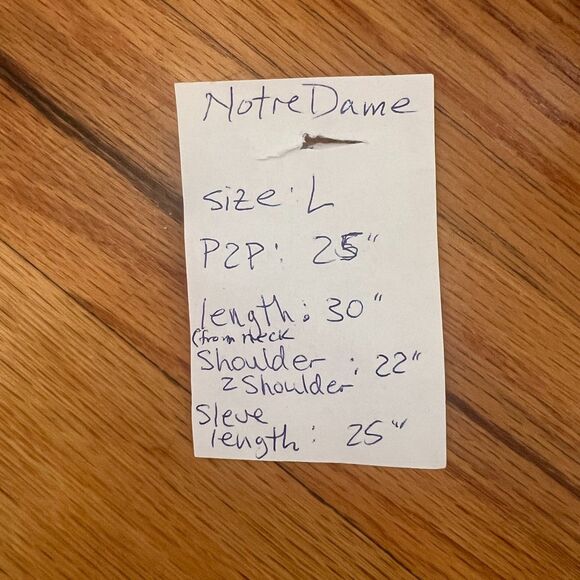 Notre Dame
size: L
P2P: 25"
length: 30"
(from neck
Shoulder : 22"
2 Shoulder
Sleve
length: 25"